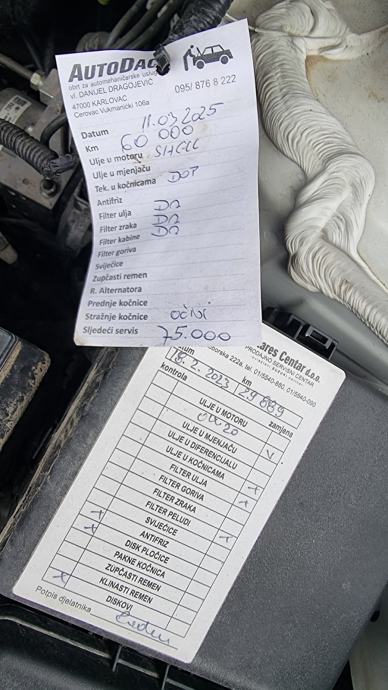 AUTODAC
obrt za automehaničarske uslug
vl. DANIJEL DRAGOJEVIĆ
47000 KARLOVAC
Cerovac Vukmanićki 106a
095/ 876 8 222
Datum 11.03.2025
Km 60 000
Ulje u motoru SHELL
Ulje u mjenjaču
Tek. u kočnicama DOT
Antifriz
Filter ulja DA
Filter zraka DA
Filter kabine DA
Filter goriva
Svijećice
Zupčasti remen
R. Alternatora
Prednje kočnice
Stražnje kočnice
Sljedeći servis 75.000
ares Centar d.o.o.
PRODAJNO SERVISNI CENTAR
borska 222a, tel. 01/5540-880, 01/5540-090
tum 2. 2023 km 29 889
kontrola zamjena
ULJE U MOTORU
ULJE U MJENJAČU
ULJE U DIFERENCIJALU
ULJE U KOČNICAMA
FILTER ULJA
FILTER GORIVA
FILTER ZRAKA
FILTER PELUDI
SVIJEĆICE
ANTIFRIZ
DISK PLOČICE
PAKNE KOČNICA
ZUPČASTI REMEN
KLINASTI REMEN
DISKOVI
Potpis djelatnika